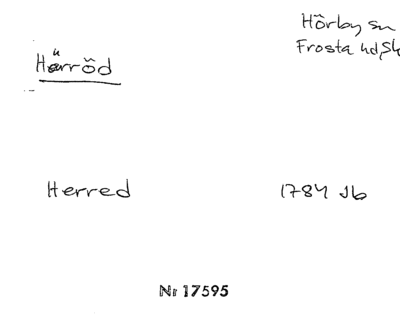 Hörby sn
Frosta hd, Sk
Härröd
Herred 1784 Jb
Nr 17595